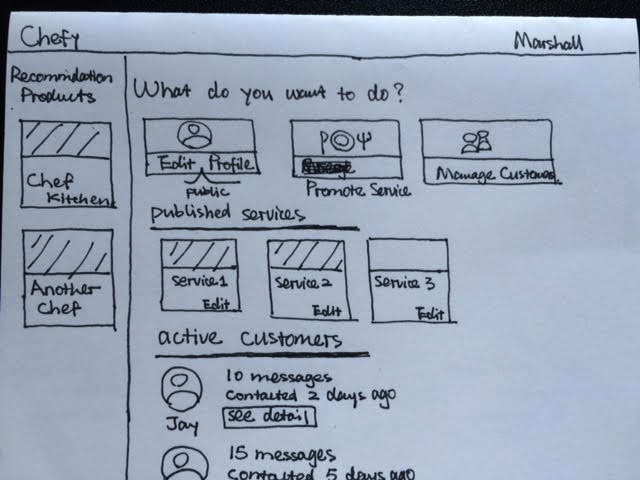 Chefy
Marshall
Recommidation
Products
Chef
Kitchen
Another
Chef
What do you want to do?
Edit Profile
public
Promote Service
Manage Customer
published services
Service1
Edit
Service 2
Edit
Service 3
Edit
active customers
Jay
10 messages
Contacted 2 days ago
see detail
15 messages
Contacted 5 days ago